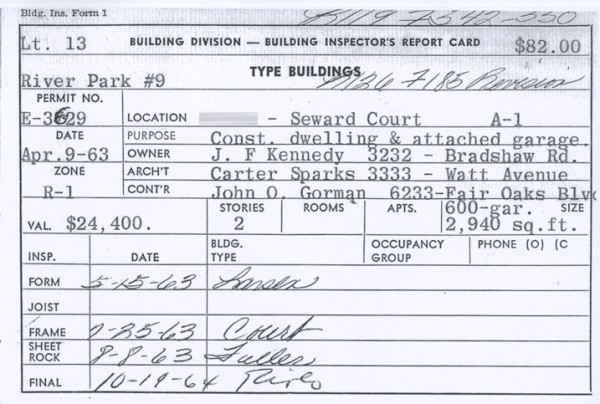 Bldg. Ins. Form 1 K119 7342-550
Lt. 13 BUILDING DIVISION — BUILDING INSPECTOR'S REPORT CARD $82.00
River Park #9 TYPE BUILDINGS Revision
PERMIT NO.
E-3629 LOCATION - Seward Court A-1
DATE PURPOSE Const. dwelling & attached garage.
Apr.9-63 OWNER J. F Kennedy 3232 - Bradshaw Rd.
ZONE ARCH'T Carter Sparks 3333 - Watt Avenue
R-1 CONT'R John O. Gorman 6233-Fair Oaks Blvd
STORIES ROOMS APTS. 600-gar. SIZE
VAL. $24,400. 2 2,940 sq.ft.
INSP. DATE BLDG. TYPE OCCUPANCY GROUP PHONE (O) (C
FORM 5-15-63 Larsen
JOIST
FRAME 7-25-63 Court
SHEET ROCK 8-8-63 Fuller
FINAL 10-19-64